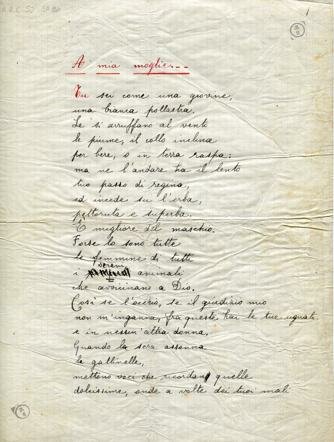 A mia moglie.--
Tu sei come una giovine,
una bianca pollastra.
Le si arruffano al vento
le piume, il collo inclina
per bere, o in terra raspa;
ma ne l'andare ha il lento
tuo passo di regina,
ed incede su l'erba,
pettoruta e superba.
È migliore del maschio.
Forse lo sono tutte
le femmine di tutte
sereni
i animali
che avvicinano a Dio.
Così se l'occhio, se il giudizio mio
non m'inganna, fra queste hai le tue uguali
e in nessun'altra donna.
Quando la sera assonna
le gallinelle,
mettono voci che ricordan quelle
dolcissime, onde a volte dei tuoi mali